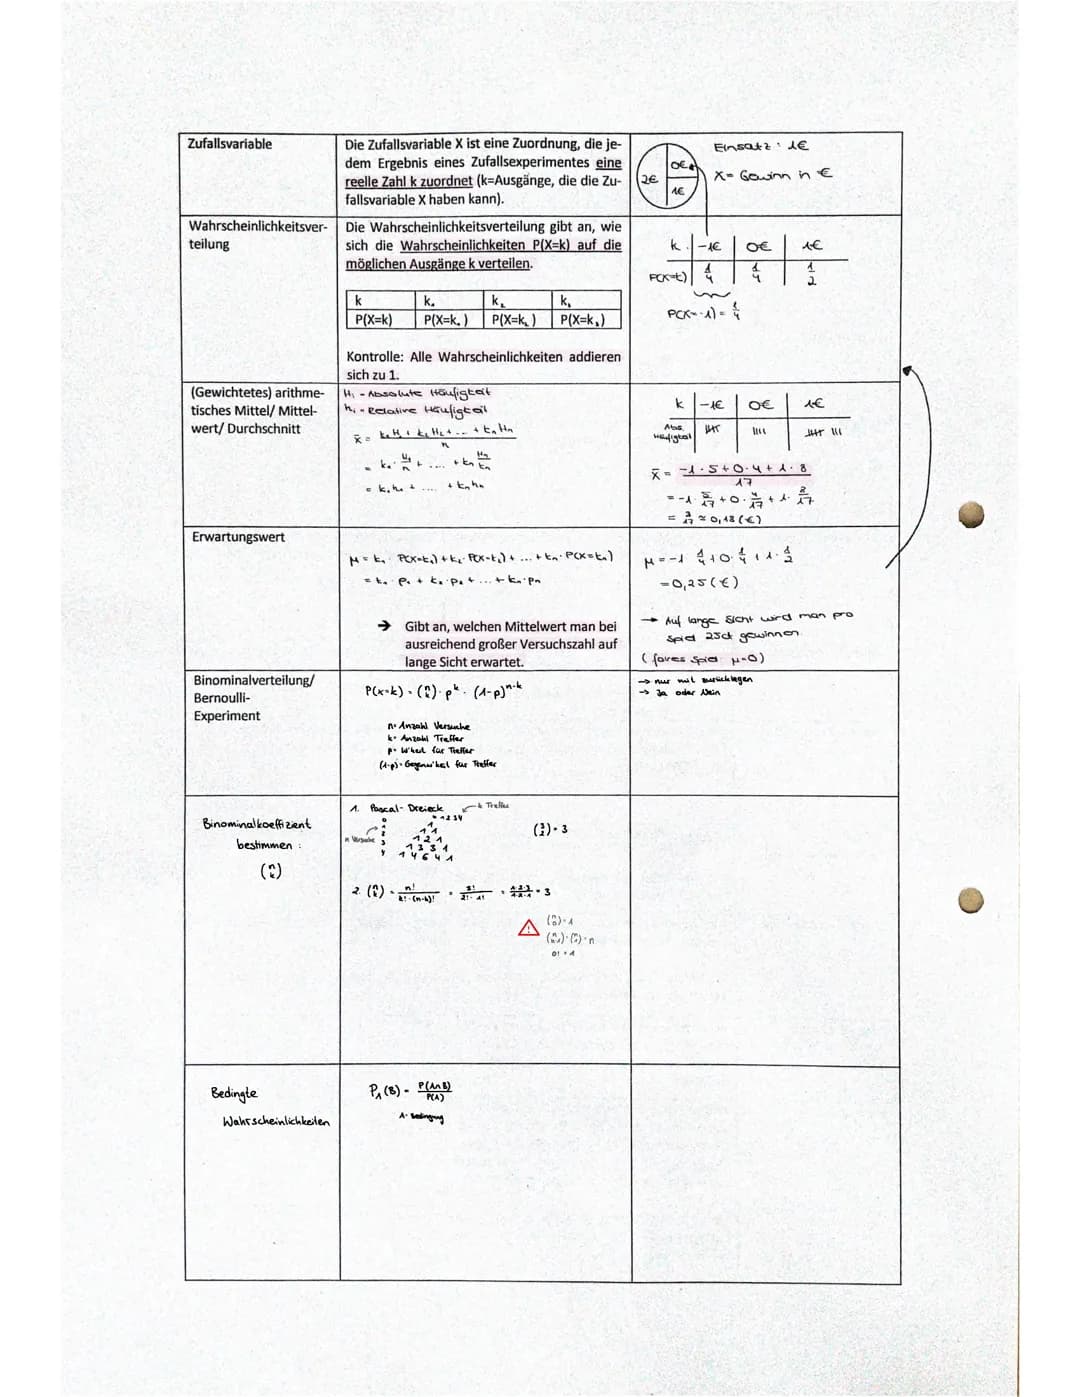 Zufallsvariable
Die Zufallsvariable X ist eine Zuordnung, die je-
dem Ergebnis eines Zufallsexperimentes eine
reelle Zahl k zuordnet (k=Ausgänge, die die Zu-
fallsvariable X haben kann).
2€
0€
1€
Einsatz: 1€
X= Gewinn in €
Wahrscheinlichkeitsver-
teilung
Die Wahrscheinlichkeitsverteilung gibt an, wie
sich die Wahrscheinlichkeiten P(X=k) auf die
möglichen Ausgänge k verteilen.
k k₁ k₂ k₃
P(X=k) P(X=k₁) P(X=k₂) P(X=k₃)
Kontrolle: Alle Wahrscheinlichkeiten addieren
sich zu 1.
k -1€ 0€ 1€
P(X=k) 1/4 1/4 1/2
P(X=-1) = 1/4
(Gewichtetes) arithme-
tisches Mittel/ Mittel-
wert/ Durchschnitt
Hᵢ - Absolute Häufigkeit
hᵢ - Relative Häufigkeit
x̄ = (k₁H₁ + k₂H₂ + ... + kₙHₙ)/n
= k₁ · H₁/n + .... + kₙ Hₙ/kₙ
= k₁h₁ + .... + kₙhₙ
k -1€ 0€ 1€
Abs. Häufigkeit
x̄ = (-1 · 5 + 0 · 4 + 1 · 8)/17
= -1 · 5/17 + 0 · 4/17 + 1 · 8/17
= 3/17 ≈ 0,18 (€)
Erwartungswert
μ = k₁ · P(X=k₁) + k₂ · P(X=k₂) + ... + kₙ · P(X=kₙ)
= k₁ · p₁ + k₂ · p₂ + ... + kₙ · pₙ
→ Gibt an, welchen Mittelwert man bei
ausreichend großer Versuchszahl auf
lange Sicht erwartet.
μ = -1 · 1/4 + 0 · 1/4 + 1 · 1/2
= 0,25 (€)
→ Auf lange Sicht wird man pro
Spiel 25ct gewinnen.
(faires Spiel: μ=0)
Binominalverteilung/
Bernoulli-
Experiment
P(x=k) = (n k) · pᵏ · (1-p)ⁿ⁻ᵏ
n= Anzahl Versuche
k= Anzahl Treffer
p= W'keit für Treffer
(1-p)= Gegenw'keit für Treffer
→ nur mit zurücklegen
→ Ja oder Nein
Binominalkoeffizient
bestimmen :
(n k)
1. Pascal- Dreieck
k Treffer
0 1 2 3 4
n Versuche
0 1
1 1 1
2 1 2 1
3 1 3 3 1
4 1 4 6 4 1
(3 2) = 3
2. (n k) = n!/(k! · (n-k)!) = 3!/(2! · 1!) = (1·2·3)/(1·2·1) = 3
(n 0) = 1
(n n-1) = (n 1) = n
0! = 1
Bedingte
Wahrscheinlichkeiten
P_A (B) = P(A∩B)/P(A)
A= Bedingung